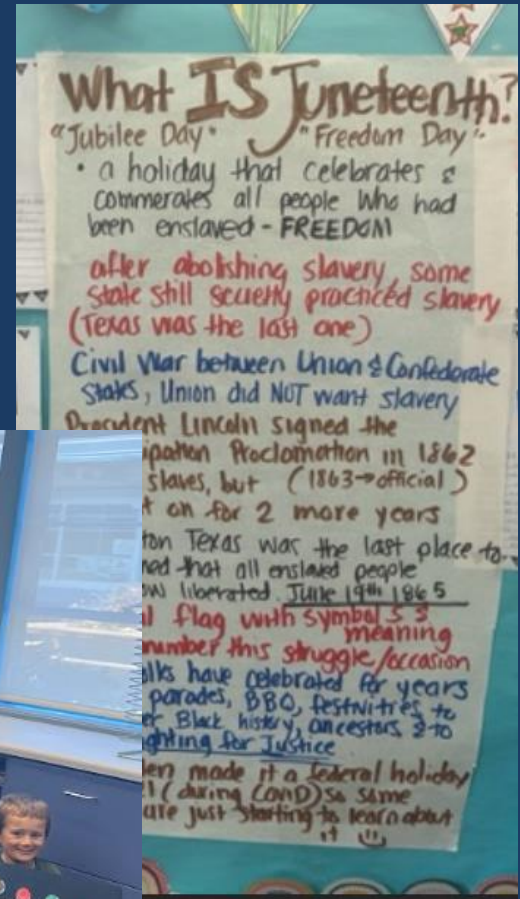 What IS Juneteenth?
"Jubilee Day" "Freedom Day"
• a holiday that celebrates &
commerates all people who had
been enslaved - FREEDOM
after abolishing slavery, some
state still secretly practiced slavery
(Texas was the last one)
Civil War between Union & Confederate
States, Union did NOT want slavery
President Lincoln signed the
ipation Proclomation in 1862
slaves, but (1863→official)
t on for 2 more years
ton Texas was the last place to
ned that all enslaved people
ow liberated. June 19th 1865
l flag with symbols &
meaning
number this struggle/occasion
lks have celebrated for years
parades, BBQ, festivities to
er Black history, ancestors & to
ghting for Justice
en made it a federal holiday
1 (during COVID) so some
are just starting to learn about
it